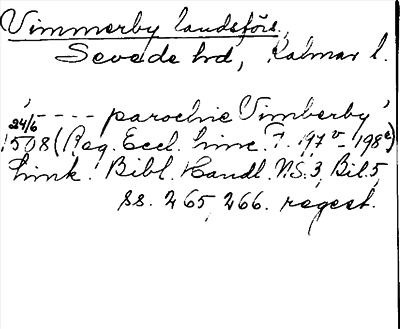 Vimmerby landsförs.,
Sevede hd, Kalmar l.
'---- parochie Vimberby'
24/6
1508 (Reg. Eccl. Linc. F. 197v - 198r)
Link. Bibl. Handl. N.S. 3, Bil. 5,
ss. 265, 266. regest.